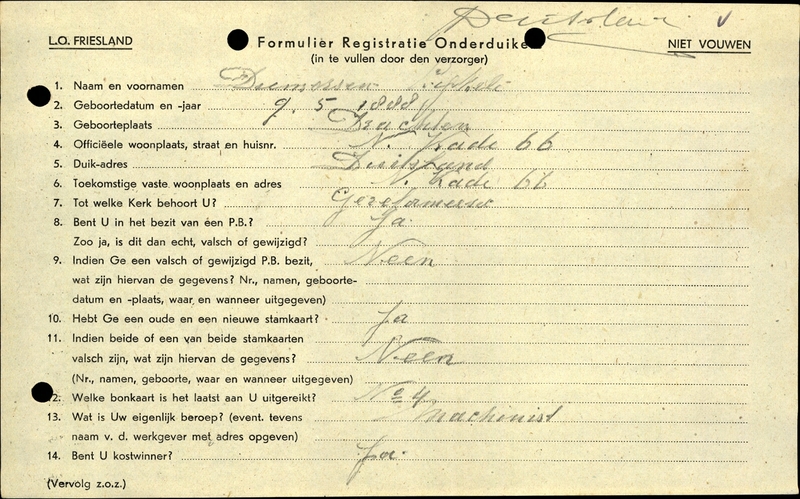 Duitsland v
L.O. FRIESLAND Formulier Registratie Onderduiker NIET VOUWEN
(in te vullen door den verzorger)
1. Naam en voornamen
2. Geboortedatum en -jaar 9 5 1888
3. Geboorteplaats Drachten
4. Officiëele woonplaats, straat en huisnr. N. Kade 66
5. Duik-adres Duitsland
6. Toekomstige vaste woonplaats en adres N. Kade 66
7. Tot welke Kerk behoort U? Gereformeerd
8. Bent U in het bezit van één P.B.? Ja
Zoo ja, is dit dan echt, valsch of gewijzigd?
9. Indien Ge een valsch of gewijzigd P.B. bezit, Neen
wat zijn hiervan de gegevens? Nr., namen, geboorte-
datum en -plaats, waar en wanneer uitgegeven)
10. Hebt Ge een oude en een nieuwe stamkaart? Ja
11. Indien beide of een van beide stamkaarten
valsch zijn, wat zijn hiervan de gegevens? Neen
(Nr., namen, geboorte, waar en wanneer uitgegeven)
12. Welke bonkaart is het laatst aan U uitgereikt? No 4
13. Wat is Uw eigenlijk beroep? (event. tevens Machinist
naam v. d. werkgever met adres opgeven)
14. Bent U kostwinner? Ja.
(Vervolg z.o.z.)